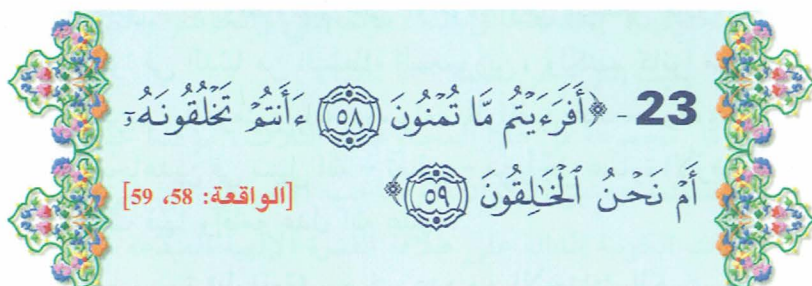 23 - ﴿أَفَرَءَيْتُم مَّا تُمْنُونَ ٥٨ ءَأَنتُمْ تَخْلُقُونَهُۥٓ
أَمْ نَحْنُ ٱلْخَٰلِقُونَ ٥٩﴾ [الواقعة: 58، 59]